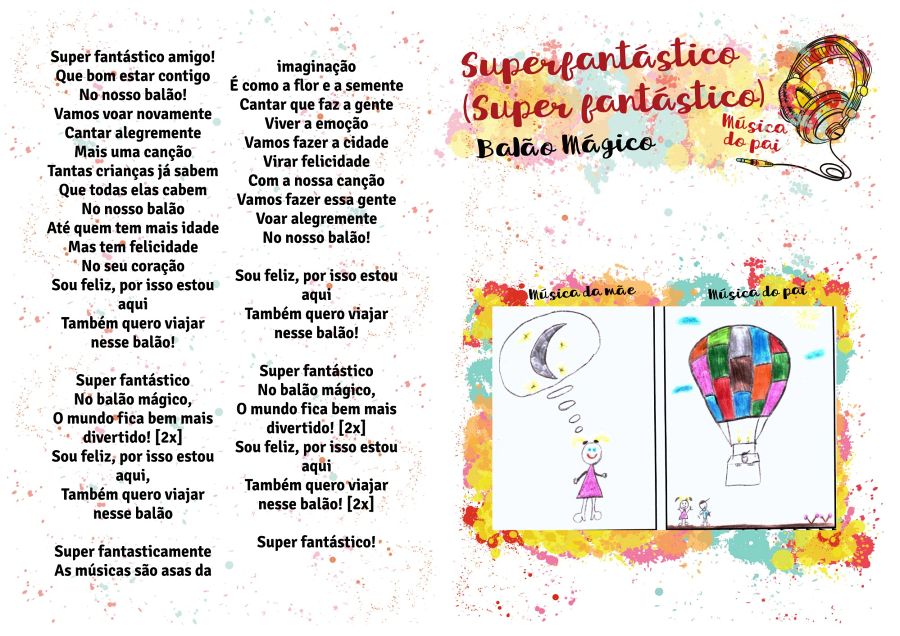 Super fantástico amigo!
Que bom estar contigo
No nosso balão!
Vamos voar novamente
Cantar alegremente
Mais uma canção
Tantas crianças já sabem
Que todas elas cabem
No nosso balão
Até quem tem mais idade
Mas tem felicidade
No seu coração
Sou feliz, por isso estou
aqui
Também quero viajar
nesse balão!
Super fantástico
No balão mágico,
O mundo fica bem mais
divertido! [2x]
Sou feliz, por isso estou
aqui,
Também quero viajar
nesse balão
Super fantasticamente
As músicas são asas da
imaginação
É como a flor e a semente
Cantar que faz a gente
Viver a emoção
Vamos fazer a cidade
Virar felicidade
Com a nossa canção
Vamos fazer essa gente
Voar alegremente
No nosso balão!
Sou feliz, por isso estou
aqui
Também quero viajar
nesse balão!
Super fantástico
No balão mágico,
O mundo fica bem mais
divertido! [2x]
Sou feliz, por isso estou
aqui
Também quero viajar
nesse balão! [2x]
Super fantástico!
Superfantástico
(Super fantástico)
Balão Mágico
Música
do pai
Música da mãe
Música do pai